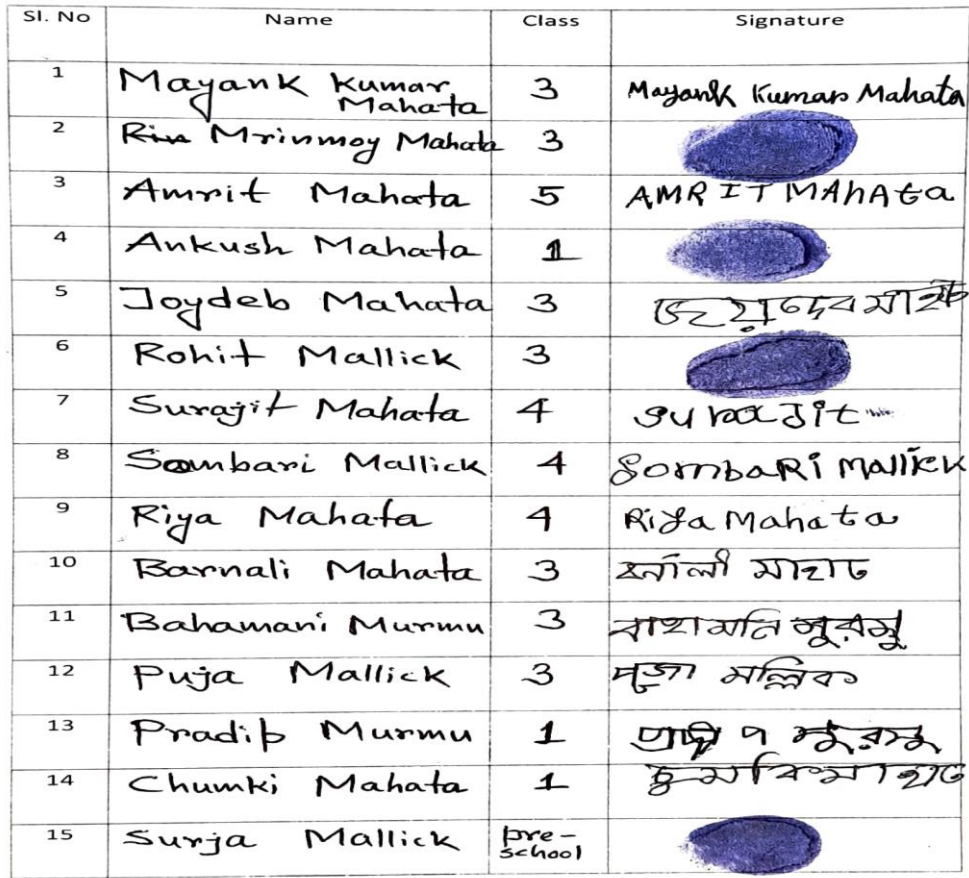 Sl. No Name Class Signature
1 Mayank Kumar Mahata 3 Mayank Kumar Mahata
2 Mrinmoy Mahata 3
3 Amrit Mahata 5 AMRIT MAhAta
4 Ankush Mahata 1
5 Joydeb Mahata 3
6 Rohit Mallick 3
7 Surajit Mahata 4 SuraJit
8 Sombari Mallick 4 SombaRi Mallick
9 Riya Mahata 4 Riya Mahata
10 Barnali Mahata 3 বর্নালী মাহাত
11 Bahamani Murmu 3 বাহামনি মুরমু
12 Puja Mallick 3 পূজা মল্লিক
13 Pradip Murmu 1
14 Chumki Mahata 1 চুমকি মাহাত
15 Surja Mallick pre-school